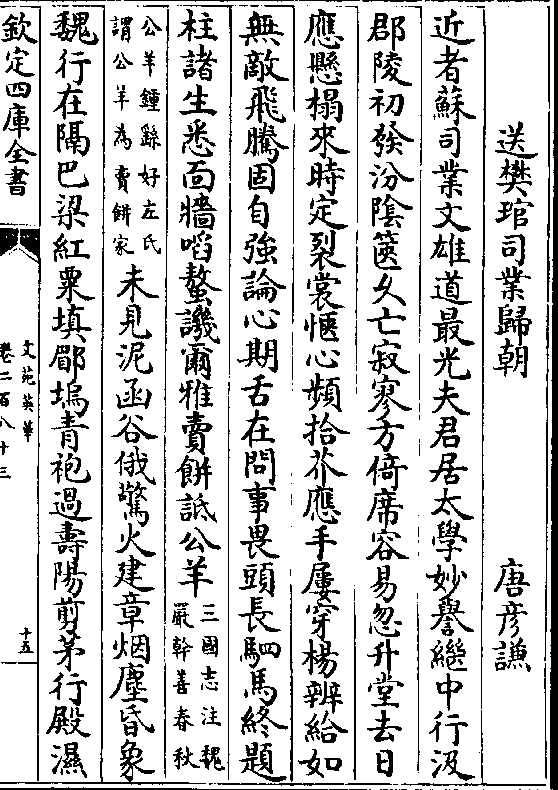 送樊琯司業歸朝　唐彦謙
近者蘇司業文雄道最光夫君居太學妙譽繼中行汲
郡陵初發汾陰篋久亡寂寥方倚席容易忽升堂去日
應懸榻來時定裂裳愜心頻拾芥應手屢穿楊辨給如
無敵飛騰固自強論心期舌在問事畏頭長駟馬終題
柱諸生悉面牆啗螯譏爾雅賣餅詆公羊三國志注魏
嚴幹善春秋
公羊鍾繇好左氏
謂公羊為賣餅家未見泥函谷俄驚火建章烟塵昏象
魏行在隔巴梁紅粟填郿塢青袍過壽陽剪茅行殿濕
欽定四庫全書
文苑英華
卷二百八十三
十五